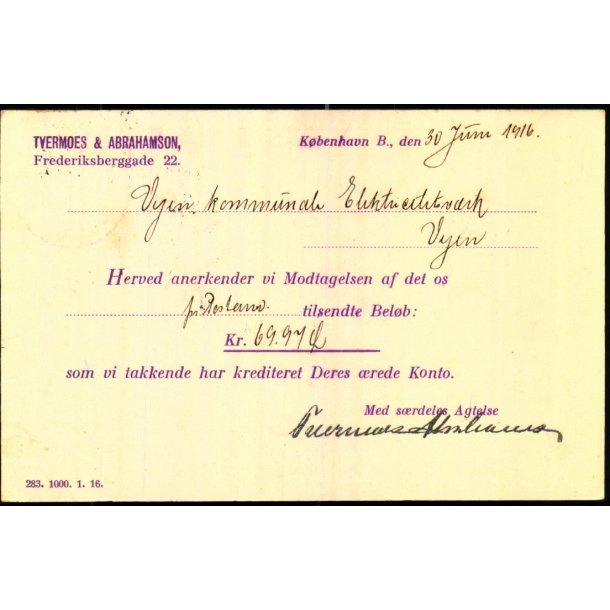 TVERMOES & ABRAHAMSON,
Frederiksberggade 22.
København B., den 30 Juni 1916.
Vejen kommunale Elektricitetsværk
Vejen
Herved anerkender vi Modtagelsen af det os
pr. Postanv. tilsendte Beløb:
Kr. 69.97
som vi takkende har krediteret Deres ærede Konto.
Med særdeles Agtelse
Tvermoes Abrahamson
283. 1000. 1. 16.